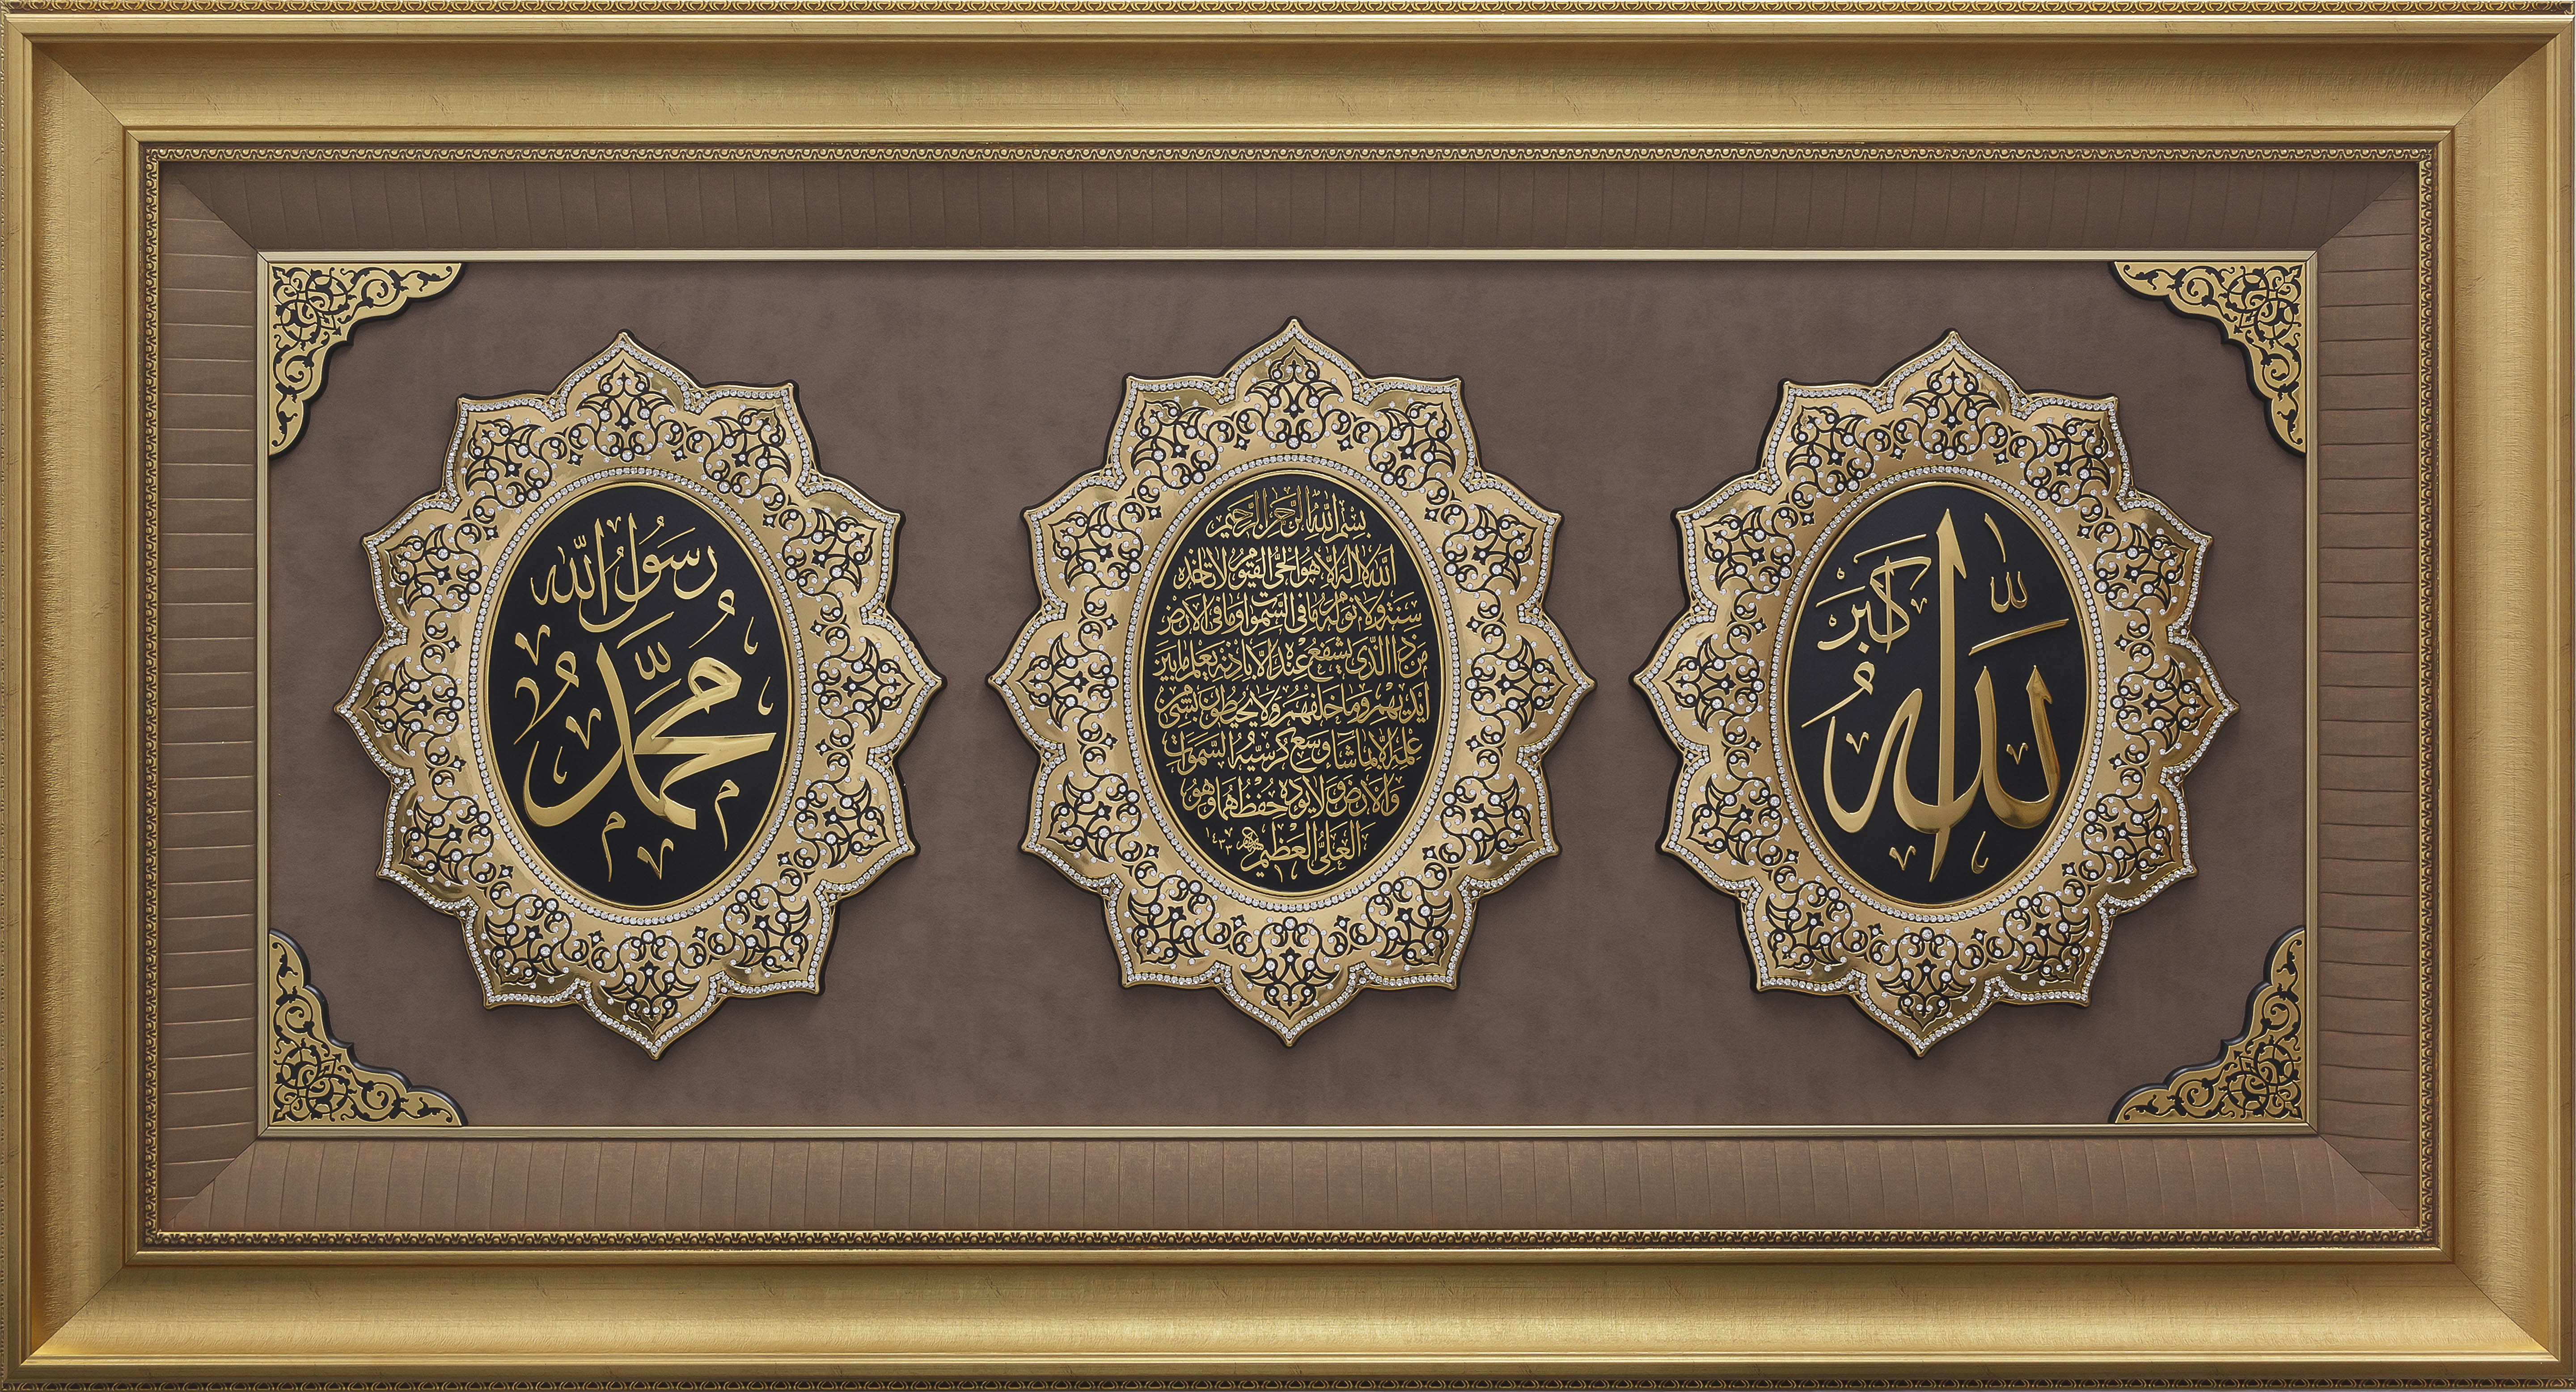 الله اكبر
بسم الله الرحمن الرحيم
الله لا اله الا هو الحي القيوم لا تأخذه
سنة ولا نوم له ما في السموات وما في الارض
من ذا الذي يشفع عنده الا باذنه يعلم ما بين
ايديهم وما خلفهم ولا يحيطون بشئ من
علمه الا بما شاء وسع كرسيه السموات
والارض ولا يؤده حفظهما وهو
العلي العظيم
رسول الله
محمد